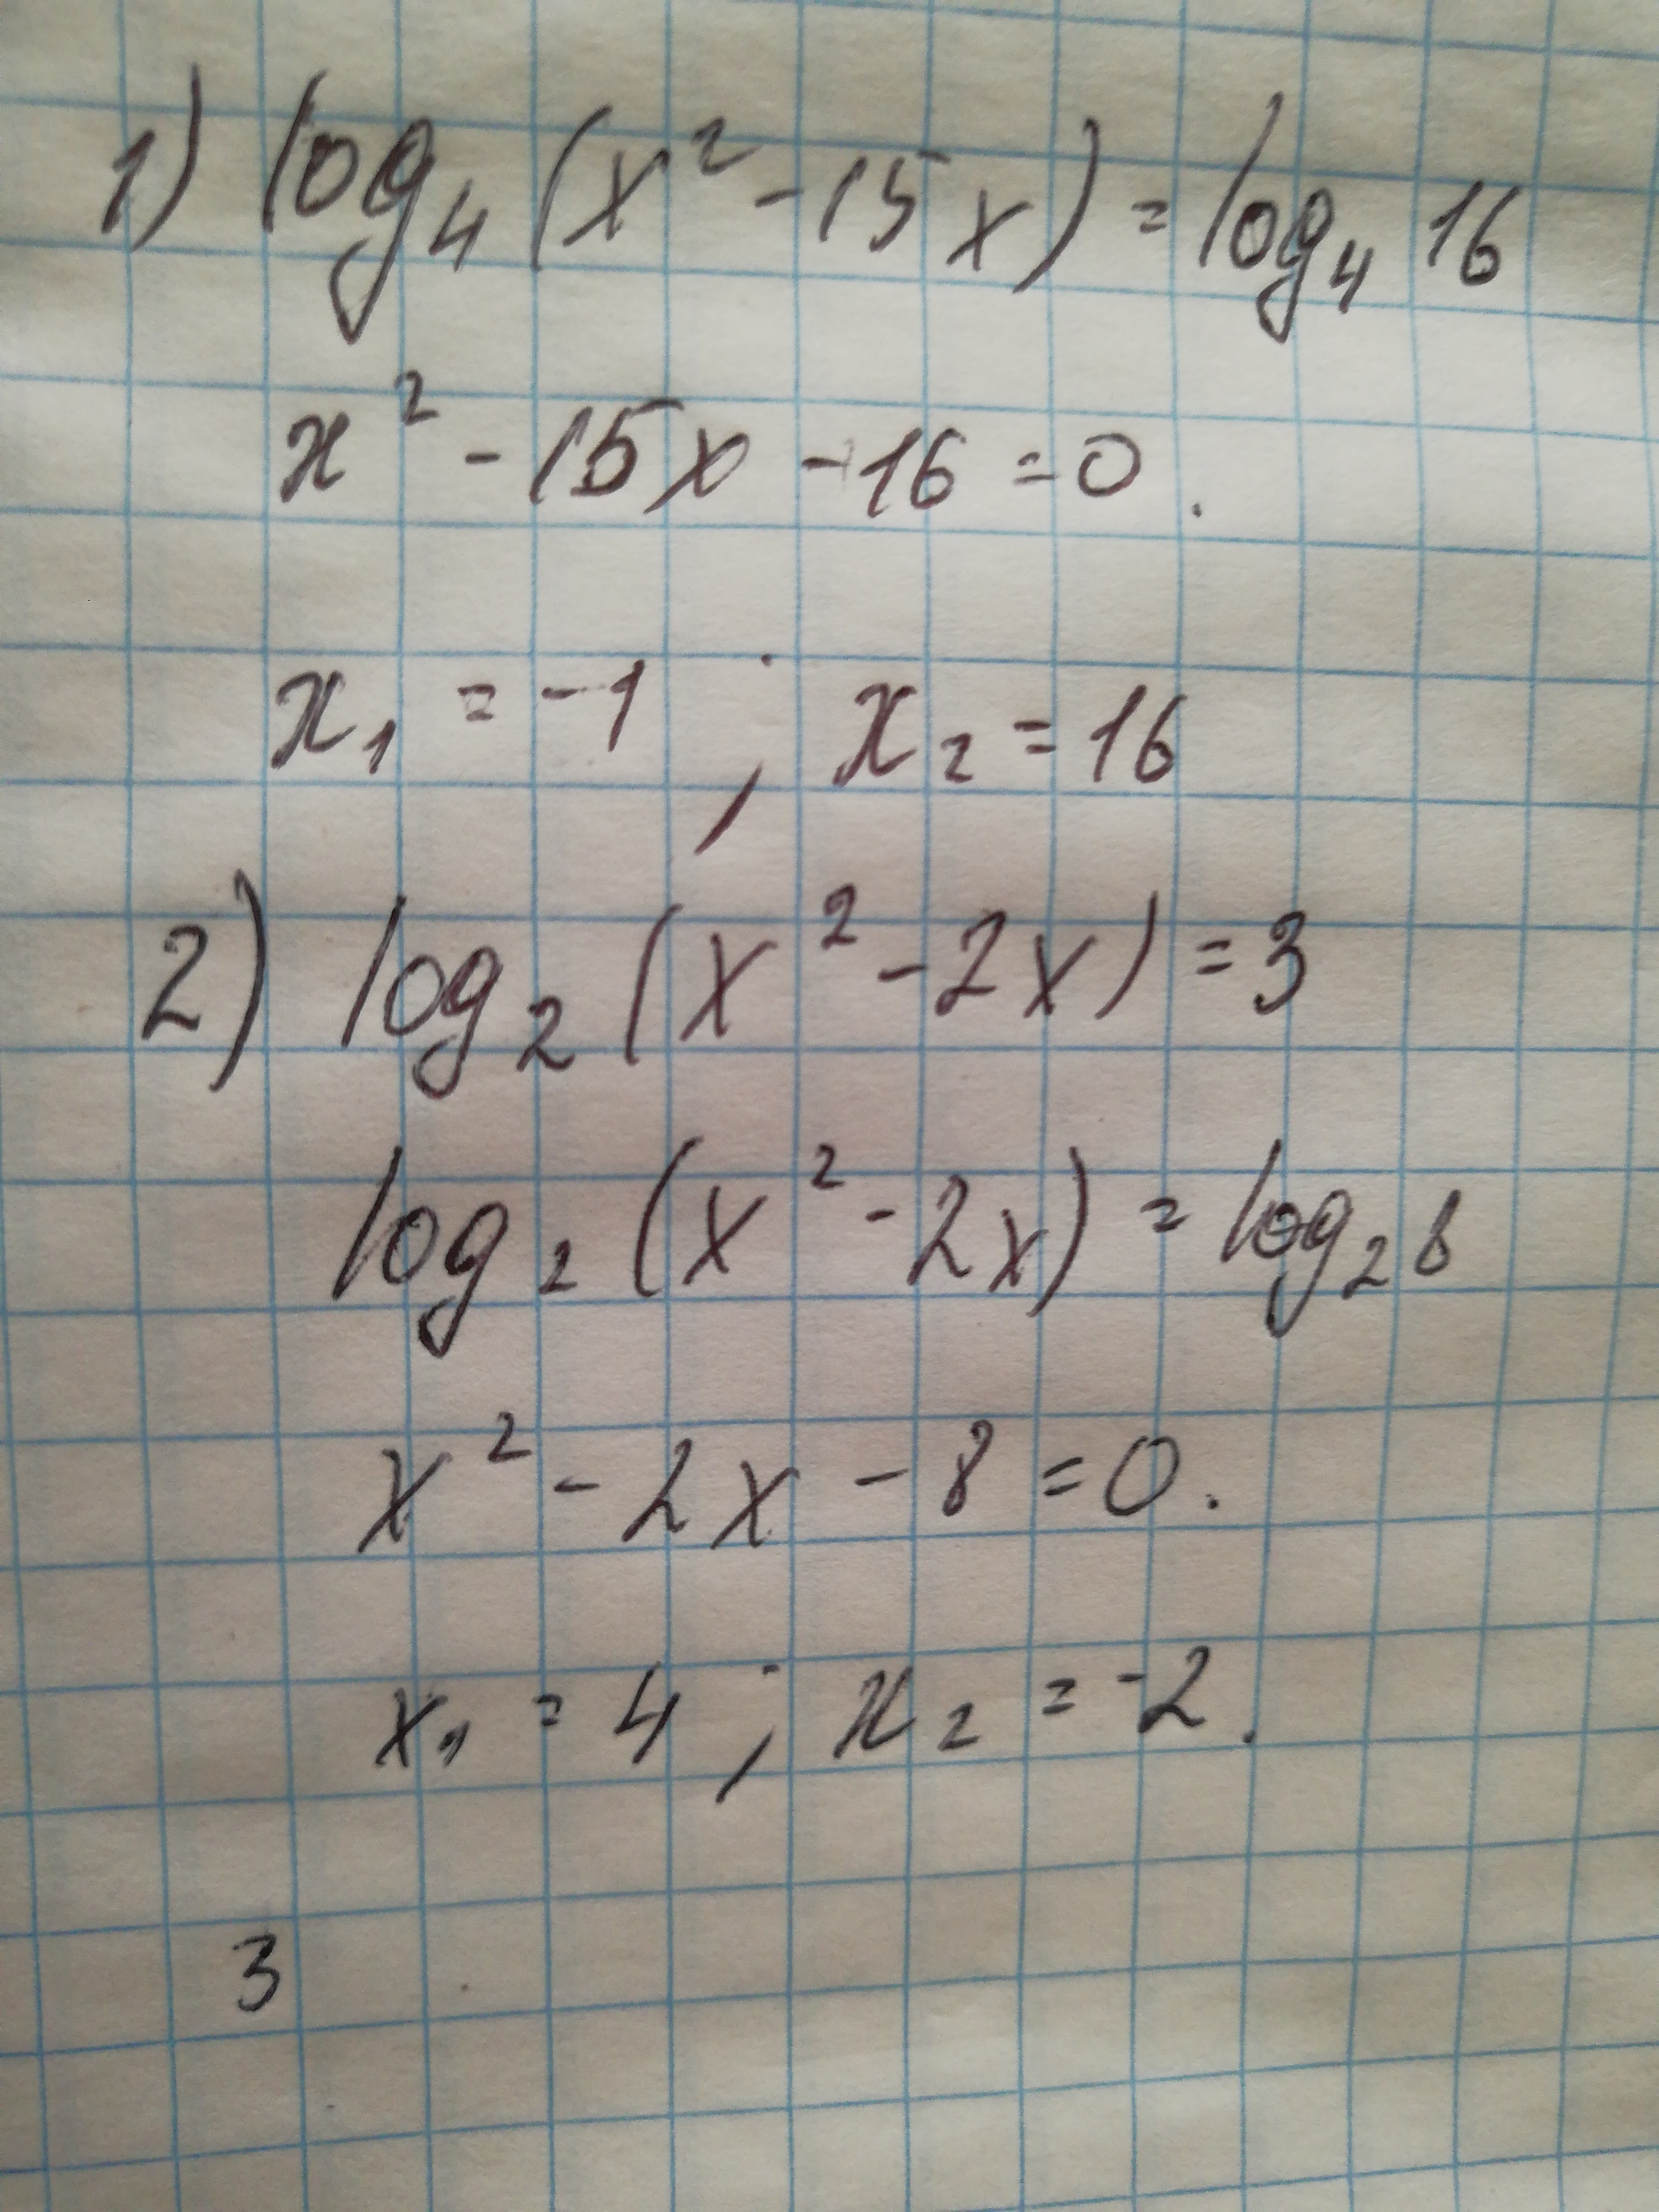 1) log₄ (x² - 15x) = log₄ 16
x² - 15x - 16 = 0.
x₁ = -1 ; x₂ = 16
2) log₂ (x² - 2x) = 3
log₂ (x² - 2x) = log₂ 8
x² - 2x - 8 = 0.
x₁ = 4 ; x₂ = -2.
3